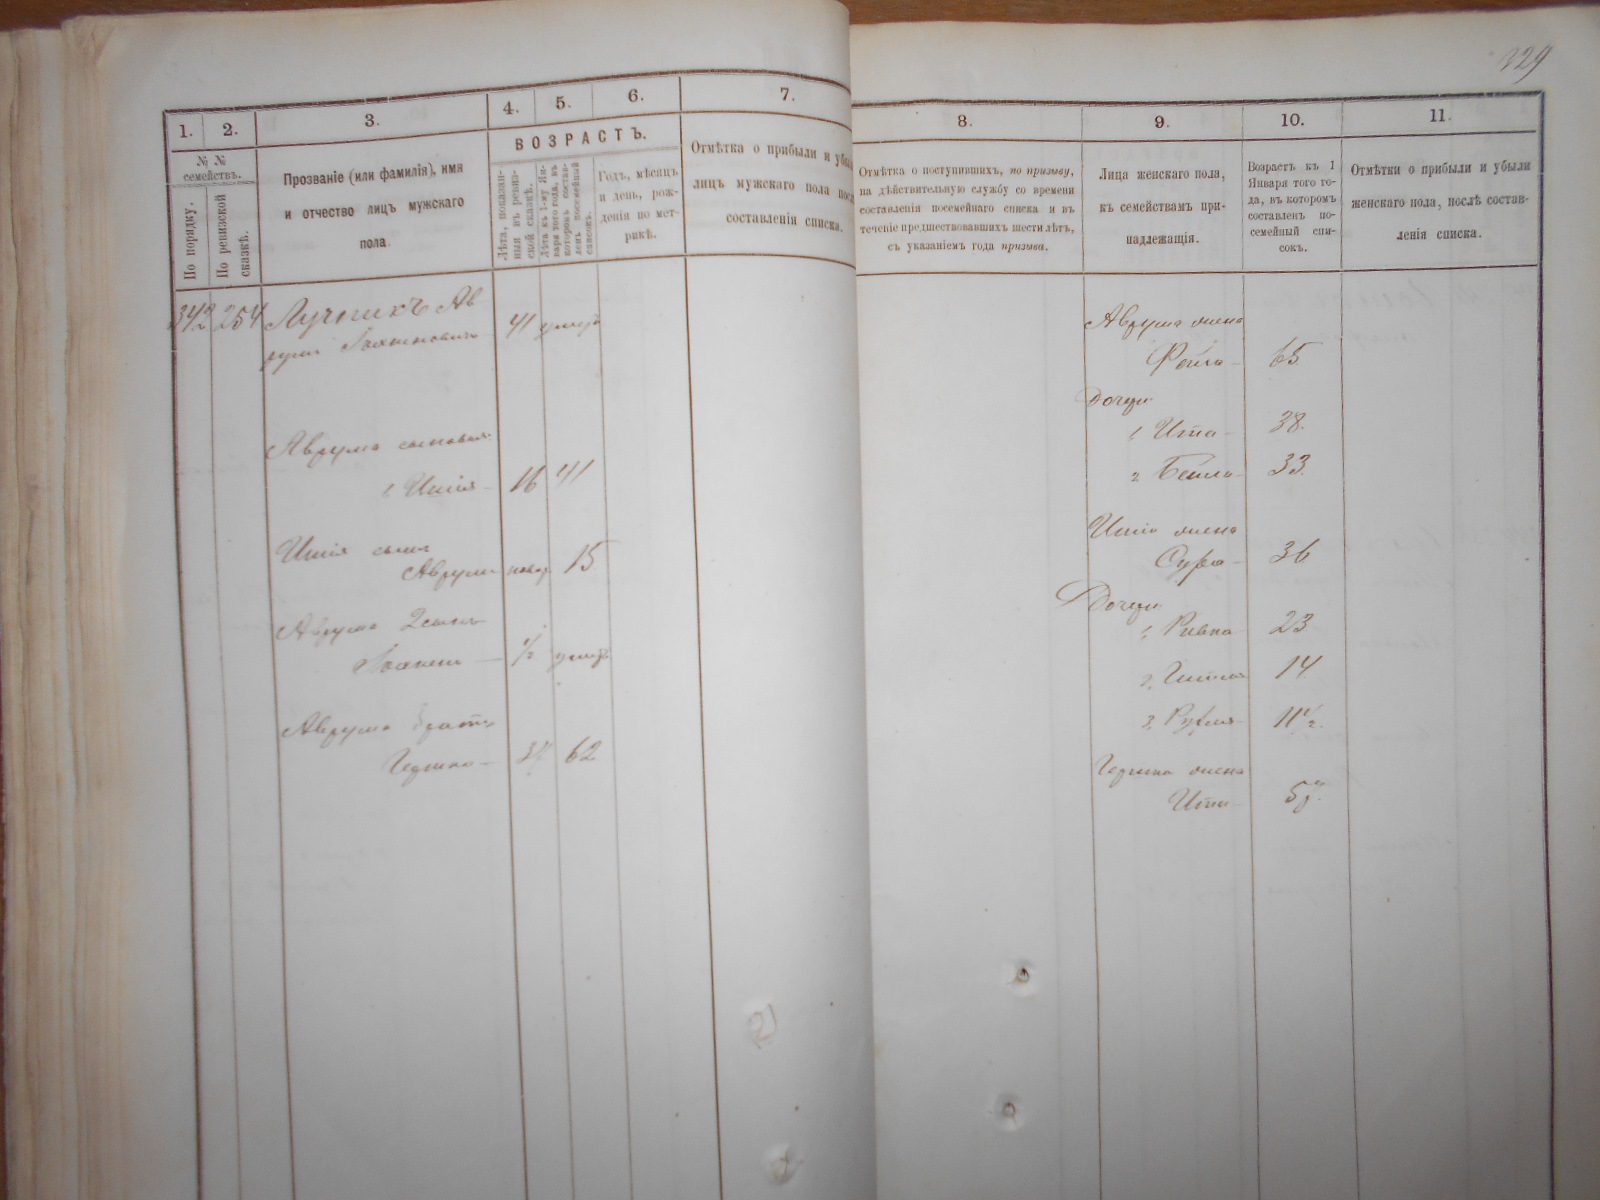 329
1.
2.
3.
4.
5.
6.
7.
8.
9.
10.
11.
№ №
семействъ.
По порядку.
По ревизской
сказкѣ.
Прозваніе (или фамилія), имя
и отчество лицъ мужскаго
пола.
ВОЗРАСТЪ.
Лѣта, показан-
ныя въ ревиз-
ской сказкѣ.
Лѣта къ 1-му Ян-
варя того года, въ
которомъ состав-
ленъ посемейный
списокъ.
Годъ, мѣсяцъ
и день, рож-
денія по мет-
рикѣ.
Отмѣтка о прибыли и убы
лицъ мужскаго пола посл
составленія списка.
Отмѣтка о поступившихъ, по призыву,
на дѣйствительную службу со времени
составленія посемейнаго списка и въ
теченіе предшествовавшихъ шести лѣтъ,
съ указаніемъ года призыва.
Лица женскаго пола,
къ семействамъ при-
надлежащія.
Возрастъ къ 1
Января того го-
да, въ которомъ
составленъ по-
семейный спи-
сокъ.
Отмѣтки о прибыли и убыли
женскаго пола, послѣ состав-
ленія списка.
342 254 Лучникъ Ав
румъ 41 умеръ
Аврума сыновья:
1 16 41
сынъ
Аврумъ 15
Аврума 2 сынъ
1/2 умеръ
Аврума братъ
62
Аврума жена
Фейга 65
Дочери
1, Ита 38
2 Бейла 33
жена
Сура 36
Дочери
1, Ривка 23
2, 14
3, Рухля 11 1/2
жена
Ита